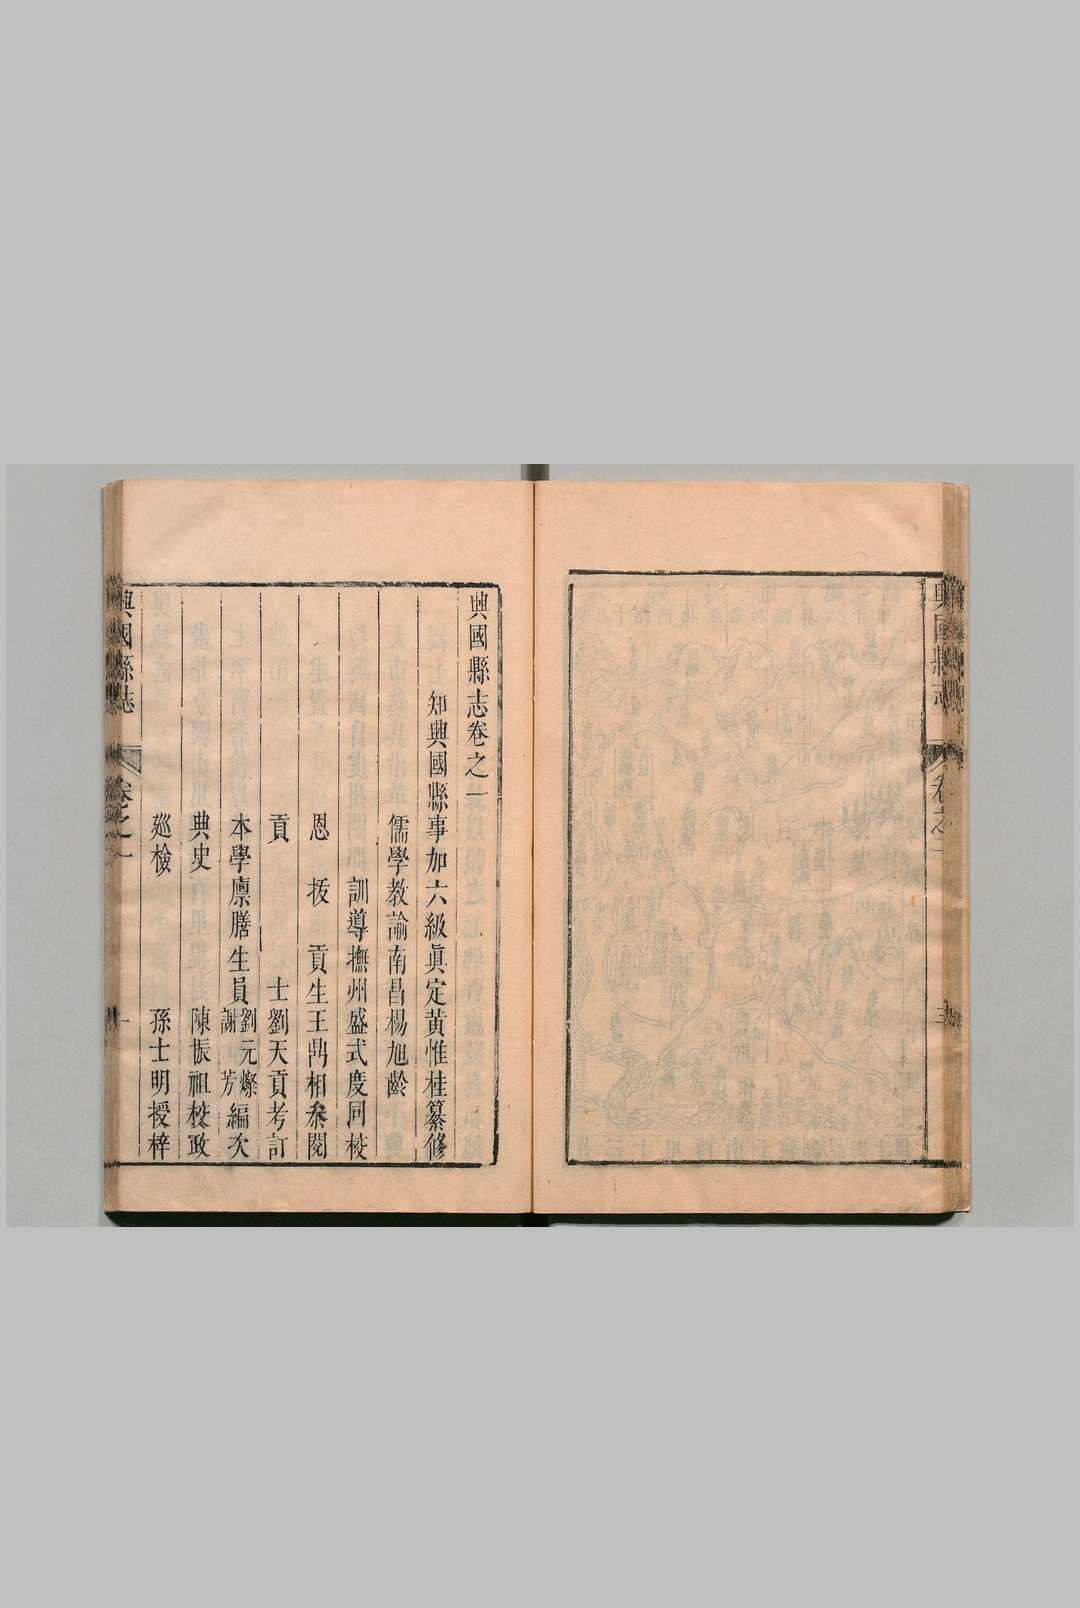 興國縣志
卷之一
三
興國縣志卷之一
知興國縣事加六級眞定黃惟桂纂修
儒學教諭南昌楊旭齡
訓導撫州盛式度同校
恩拔貢生王鼎相叅閱
貢士劉天貢考訂
本學廩膳生員劉元燦謝芳編次
典史陳振祖校政
廵檢孫士明授梓
興國縣誌
卷之一
一